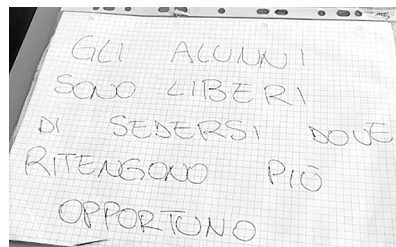 GLI ALUNNI
SONO LIBERI
DI SEDERSI DOVE
RITENGONO PIÙ
OPPORTUNO